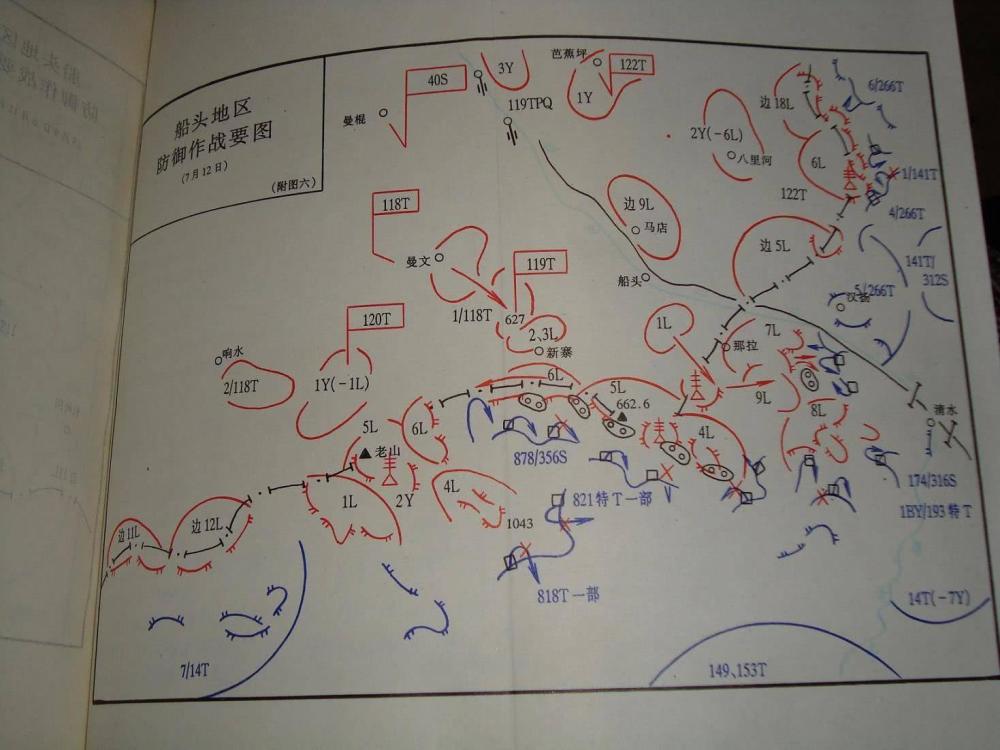 船头地区
防御作战要图
(7月12日)
(附图六)
40S
曼棍
3Y
119TPQ
芭蕉坪
122T
1Y
2Y(-6L)
八里河
边18L
6/266T
6L
1/141T
122T
4/266T
边9L
马店
边5L
141T/
312S
5/266T
船头
118T
曼文
119T
1/118T
627
2、3L
新寨
120T
响水
2/118T
1Y(-1L)
1L
那拉
7L
6L
5L
9L
8L
662.6
4L
清水
5L
6L
老山
878/356S
1L
2Y
4L
821特T一部
174/316S
1BY/193特T
边12L
边11L
1043
818T一部
14T(-7Y)
7/14T
149、153T